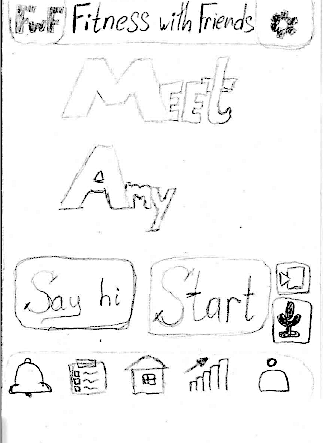 FWF Fitness with Friends
MEET
Amy
Say hi Start